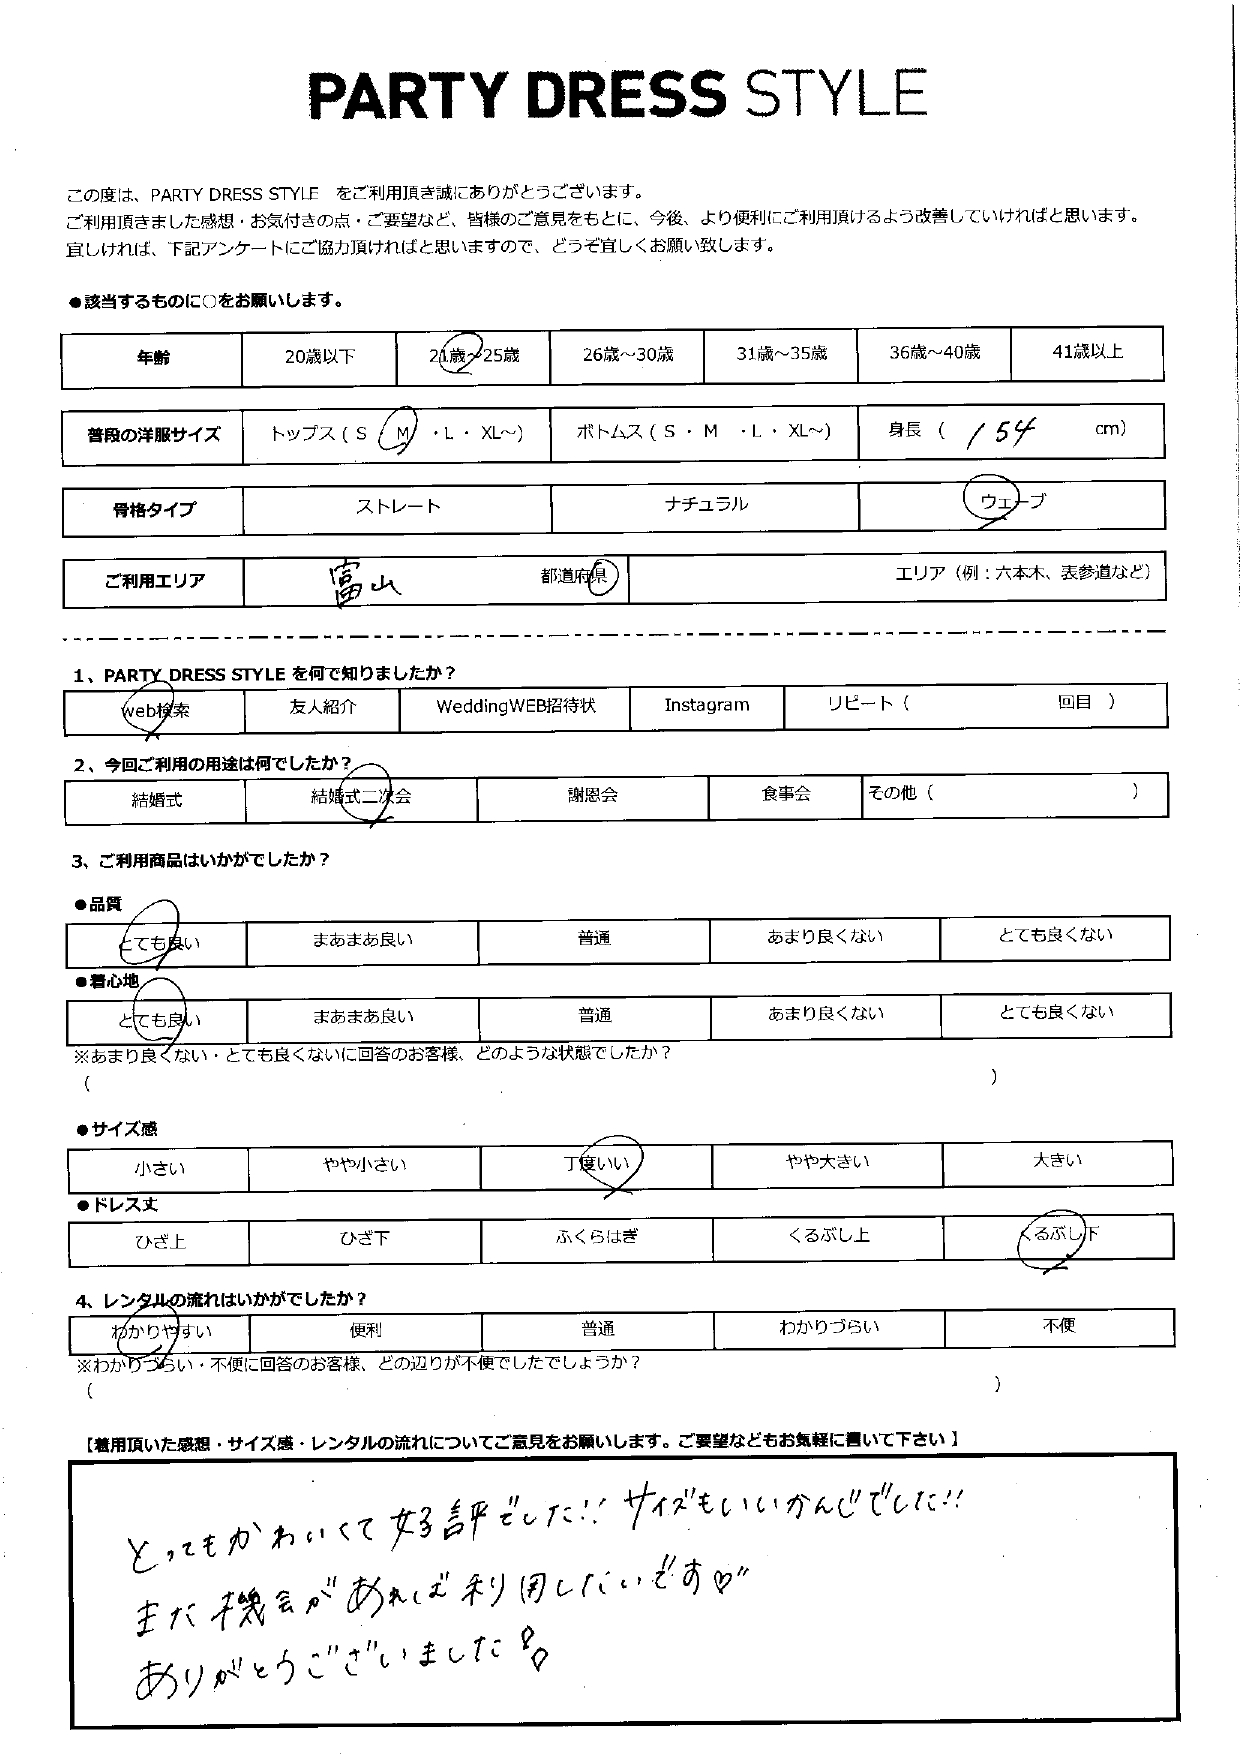 PARTY DRESS STYLE
この度は、PARTY DRESS STYLE をご利用頂き誠にありがとうございます。
ご利用頂きました感想・お気付きの点・ご要望など、皆様のご意見をもとに、今後、より便利にご利用頂けるよう改善していければと思います。
宜しければ、下記アンケートにご協力頂ければと思いますので、どうぞ宜しくお願い致します。
●該当するものに○をお願いします。
年齢 20歳以下 21歳～25歳 26歳～30歳 31歳～35歳 36歳～40歳 41歳以上
普段の洋服サイズ トップス（ S ・ M ・L ・ XL～） ボトムス（ S ・ M ・L ・ XL～） 身長（ 154 cm）
骨格タイプ ストレート ナチュラル ウェーブ
ご利用エリア 富山 都道府県 エリア（例：六本木、表参道など）
1、PARTY DRESS STYLE を何で知りましたか？
web検索 友人紹介 WeddingWEB招待状 Instagram リピート（ 回目 ）
2、今回ご利用の用途は何でしたか？
結婚式 結婚式二次会 謝恩会 食事会 その他（ ）
3、ご利用商品はいかがでしたか？
●品質
とても良い まあまあ良い 普通 あまり良くない とても良くない
●着心地
とても良い まあまあ良い 普通 あまり良くない とても良くない
※あまり良くない・とても良くないに回答のお客様、どのような状態でしたか？
（ ）
●サイズ感
小さい やや小さい 丁度いい やや大きい 大きい
●ドレス丈
ひざ上 ひざ下 ふくらはぎ くるぶし上 くるぶし下
4、レンタルの流れはいかがでしたか？
わかりやすい 便利 普通 わかりづらい 不便
※わかりづらい・不便に回答のお客様、どの辺りが不便でしたでしょうか？
（ ）
【着用頂いた感想・サイズ感・レンタルの流れについてご意見をお願いします。ご要望などもお気軽に書いて下さい 】
とってもかわいくて好評でした!! サイズもいいかんじでした!!
また機会があれば利用したいです♡〃
ありがとうございました